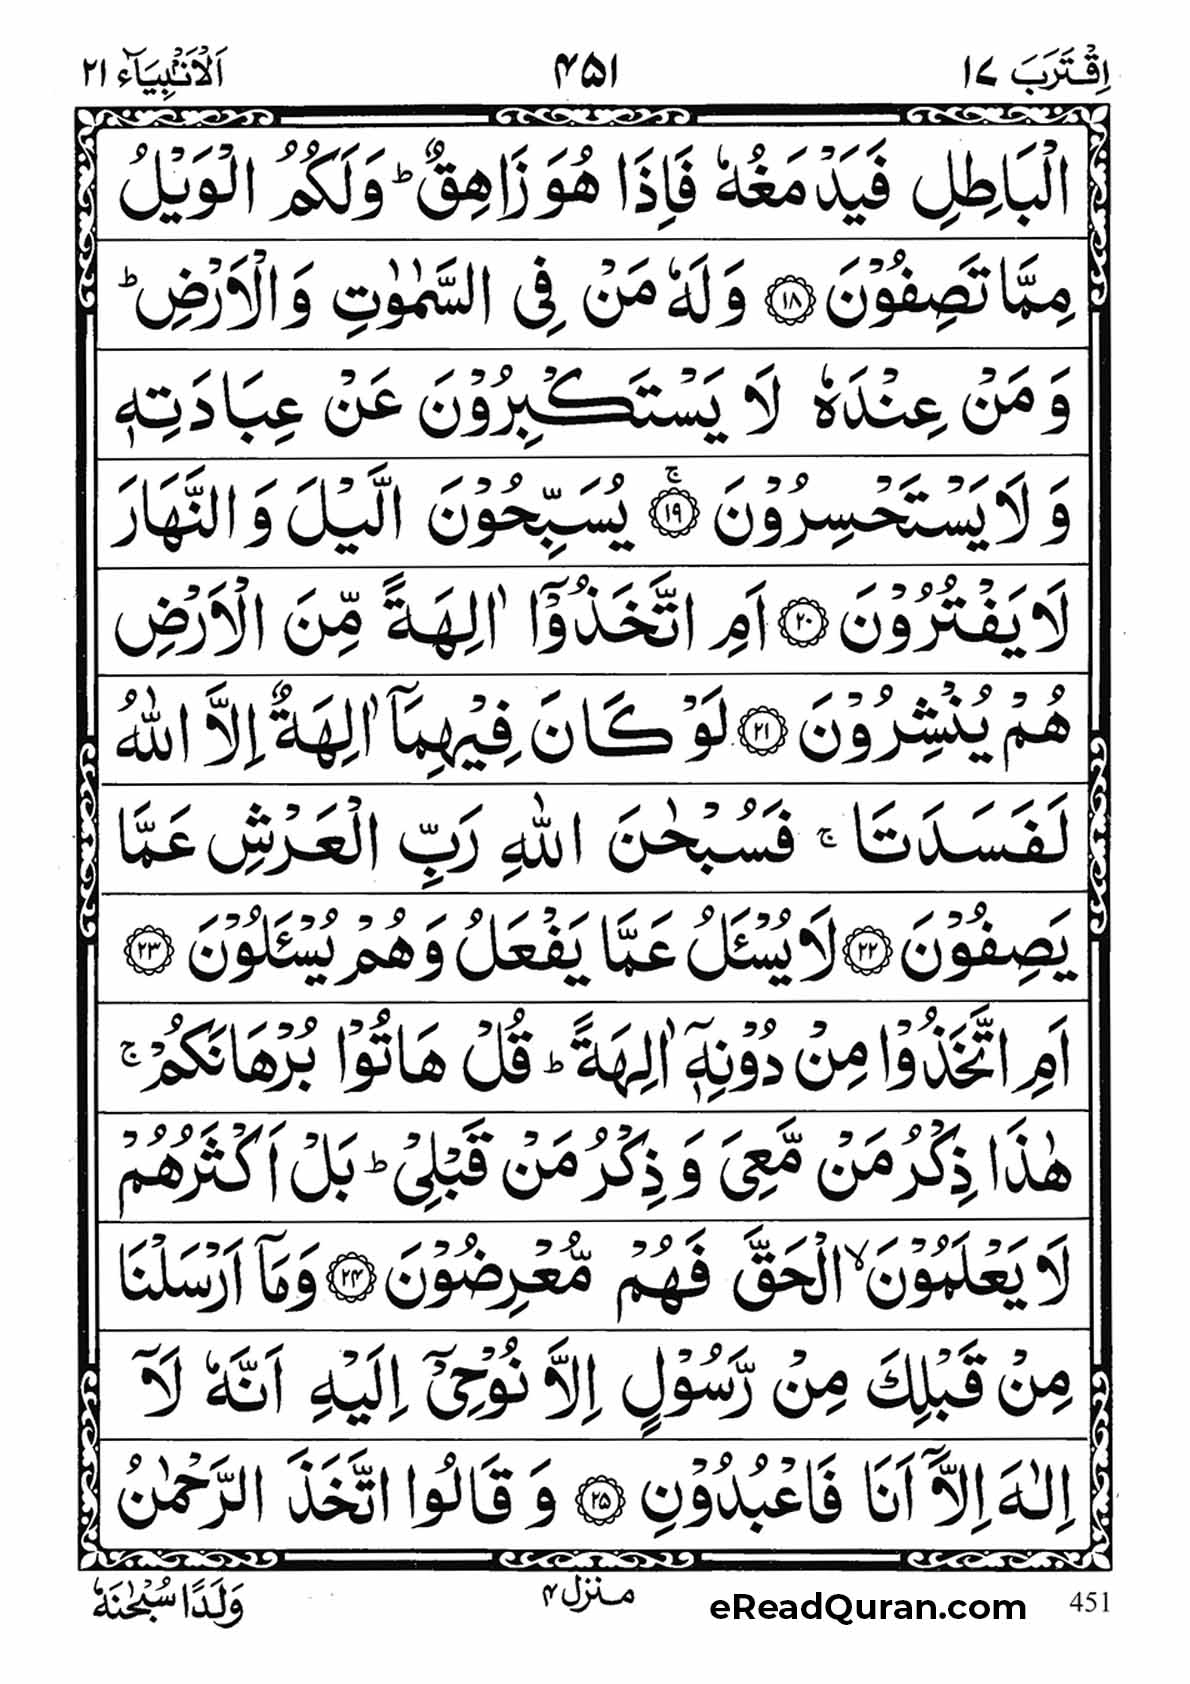 اِقْتَرَبَ ١٧ ٤٥١ اَلْاَنْۢبِيَآء ٢١
الْبَاطِلِ فَيَدْمَغُهٗ فَاِذَا هُوَ زَاهِقٌ ؕ وَلَكُمُ الْوَيْلُ
مِمَّا تَصِفُوْنَ ﴿١٨﴾ وَلَهٗ مَنْ فِي السَّمٰوٰتِ وَالْاَرْضِ ؕ
وَمَنْ عِنْدَهٗ لَا يَسْتَكْبِرُوْنَ عَنْ عِبَادَتِهٖ
وَلَا يَسْتَحْسِرُوْنَ ﴿١٩﴾ۚ يُسَبِّحُوْنَ الَّيْلَ وَالنَّهَارَ
لَا يَفْتُرُوْنَ ﴿٢٠﴾ اَمِ اتَّخَذُوْۤا اٰلِهَةً مِّنَ الْاَرْضِ
هُمْ يُنْشِرُوْنَ ﴿٢١﴾ لَوْ كَانَ فِيْهِمَاۤ اٰلِهَةٌ اِلَّا اللّٰهُ
لَفَسَدَتَا ۚ فَسُبْحٰنَ اللّٰهِ رَبِّ الْعَرْشِ عَمَّا
يَصِفُوْنَ ﴿٢٢﴾ لَا يُسْـَٔلُ عَمَّا يَفْعَلُ وَهُمْ يُسْـَٔلُوْنَ ﴿٢٣﴾
اَمِ اتَّخَذُوْا مِنْ دُوْنِهٖۤ اٰلِهَةً ؕ قُلْ هَاتُوْا بُرْهَانَكُمْ ۚ
هٰذَا ذِكْرُ مَنْ مَّعِيَ وَذِكْرُ مَنْ قَبْلِيْ ؕ بَلْ اَكْثَرُهُمْ
لَا يَعْلَمُوْنَ ۙ الْحَقَّ فَهُمْ مُّعْرِضُوْنَ ﴿٢٤﴾ وَمَاۤ اَرْسَلْنَا
مِنْ قَبْلِكَ مِنْ رَّسُوْلٍ اِلَّا نُوْحِيْۤ اِلَيْهِ اَنَّهٗ لَاۤ
اِلٰهَ اِلَّاۤ اَنَا فَاعْبُدُوْنِ ﴿٢٥﴾ وَقَالُوا اتَّخَذَ الرَّحْمٰنُ
451 eReadQuran.com منزل ٤ وَلَدًا سُبْحٰنَهٗ